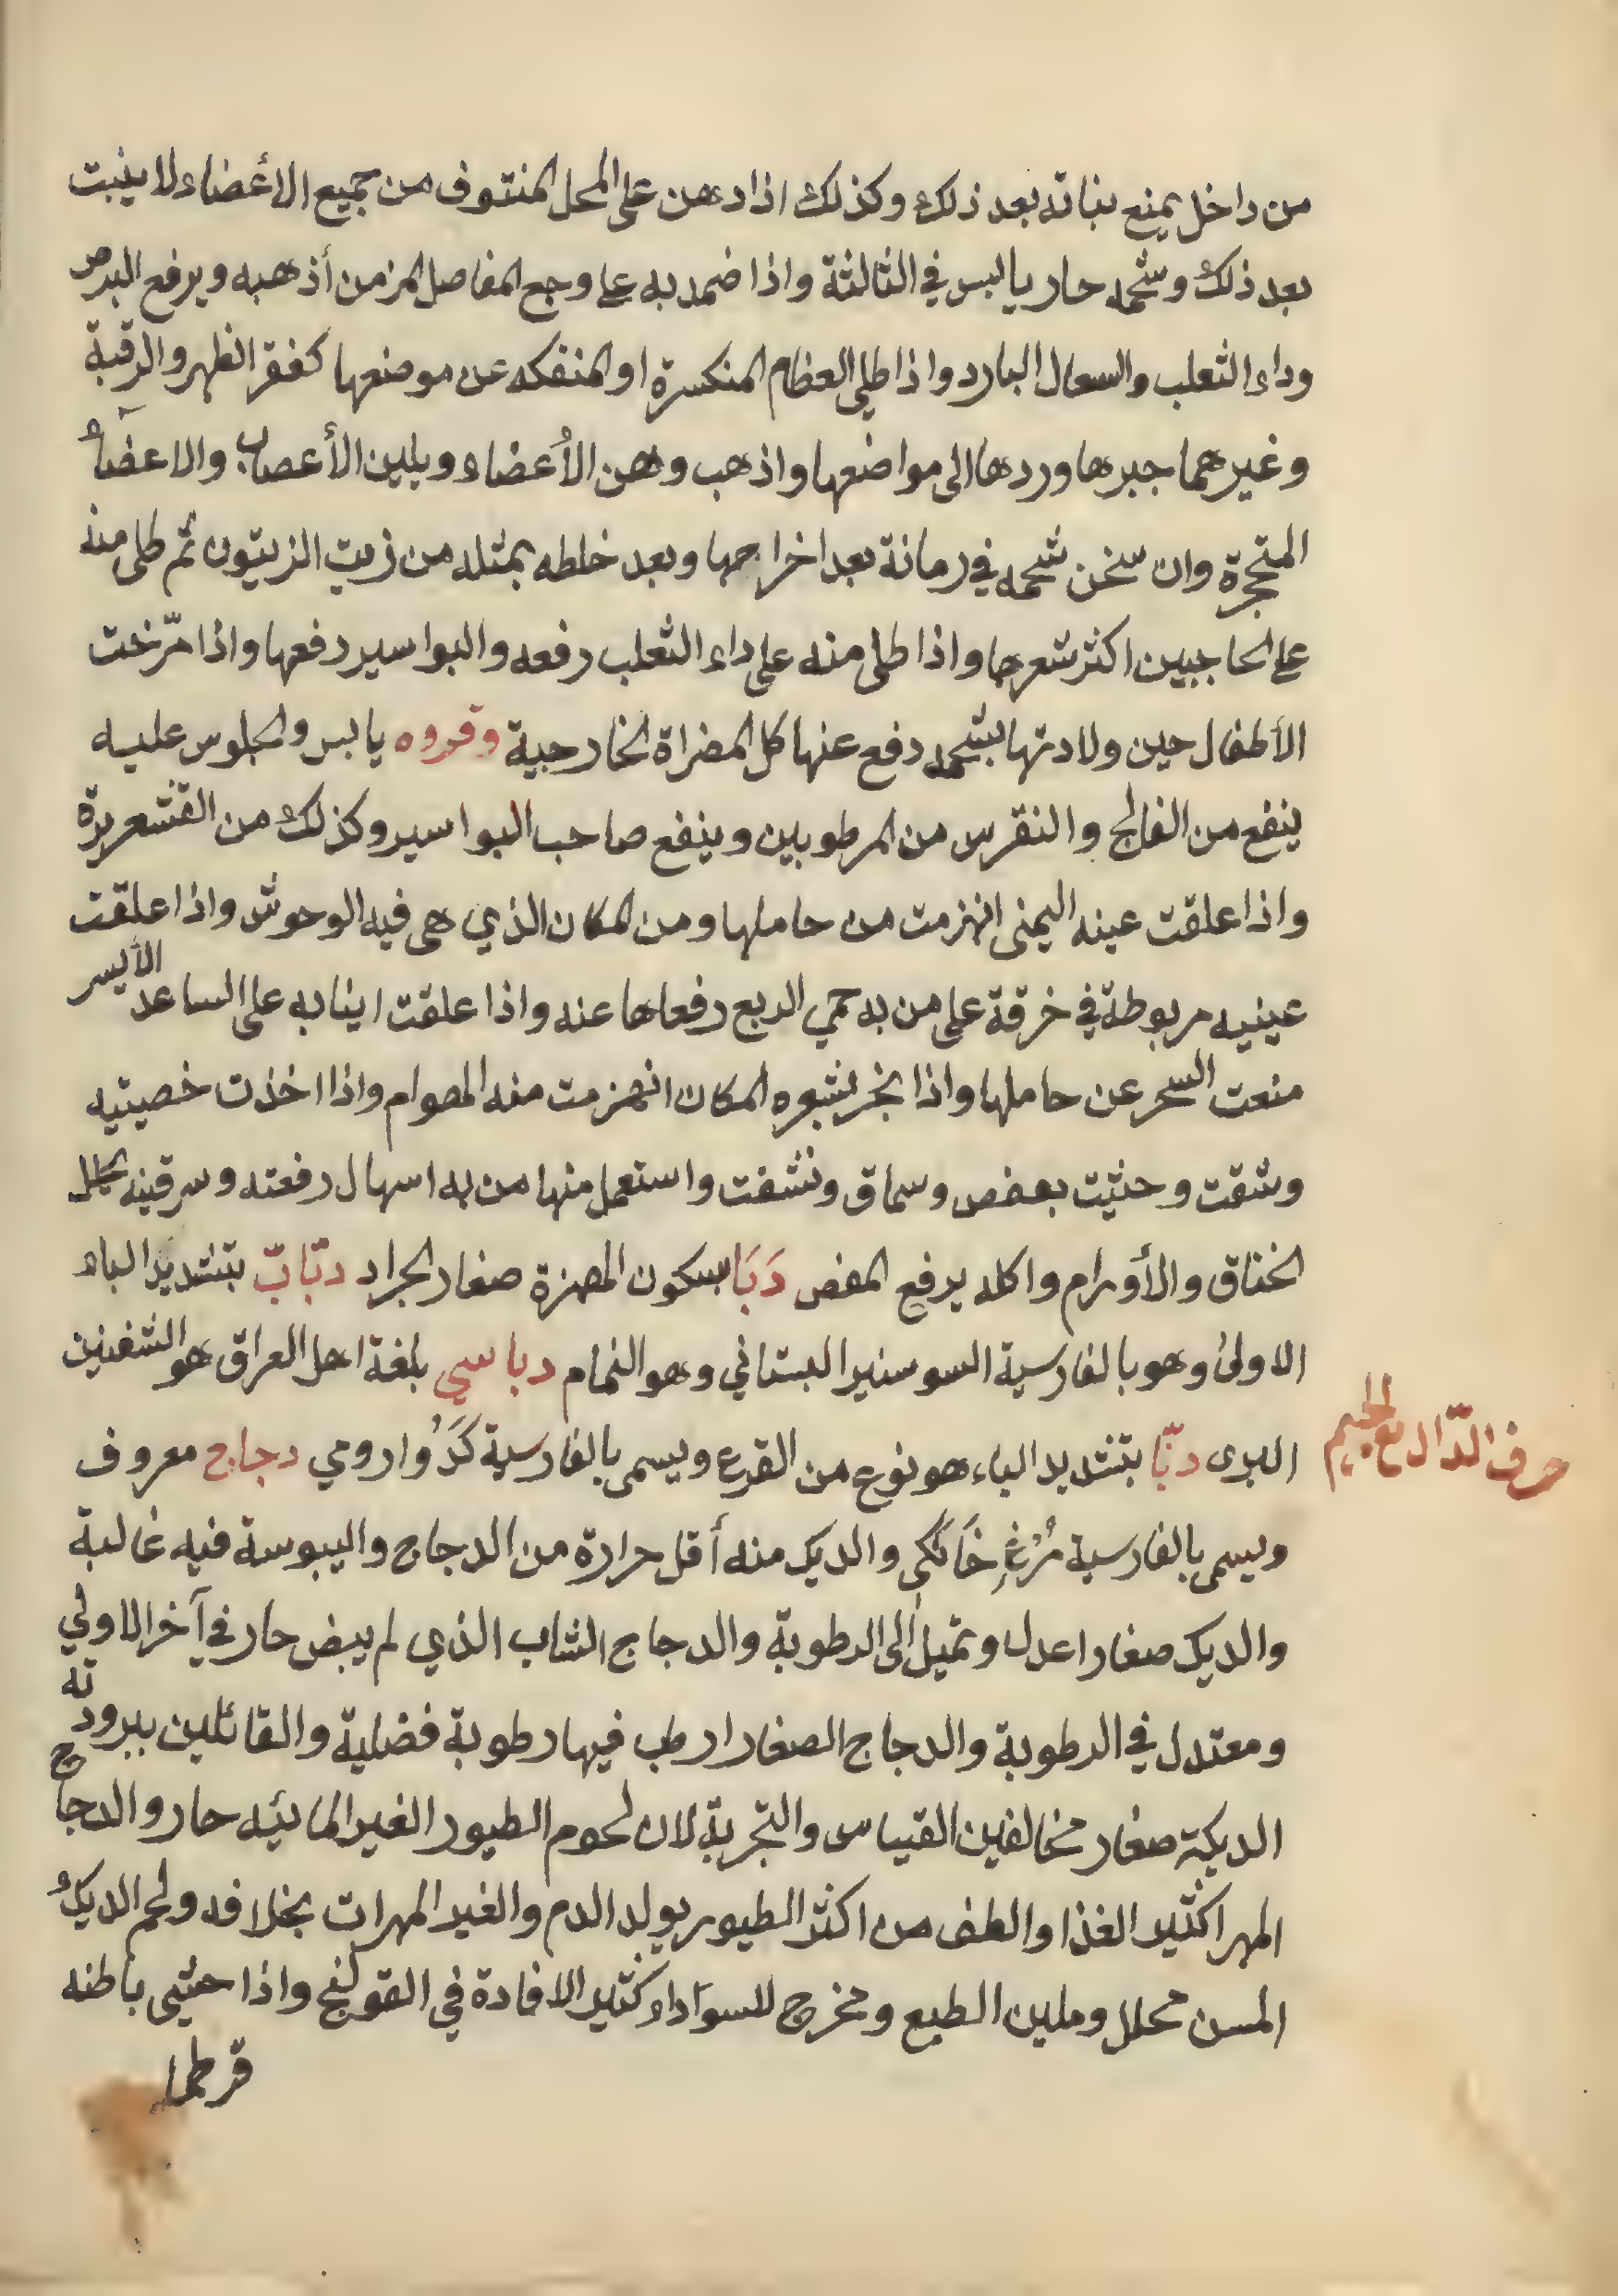 من داخل يمنع بناته بعد ذلك وكذلك اذا دهن على المحل المنتوف من جميع الأعضاء لا ينبت
بعد ذلك وشحمه حار يابس في الثالثة واذا ضمد به على وجع المفاصل المزمن أذهبه ويرفع البرص
وداء الثعلب والسعال البارد واذا طلي العظام المنكسرة او المنفكه عن موضعها كفقر الظهر والرقبة
وغيرهما جبرها وردها الى مواضعها واذهب وهن الأعضاء ويلين الأعصاب والاعضاء
المتحجرة وان سخن شحمه في رمانة بعد اخراجها وبعد خلطه بمثله من زيت الزيتون ثم طلى منه
على الحاجبين اكثر شعرها واذا طلى منه على داء الثعلب رفعه والبواسير دفعها واذا مرّخت
الأطفال حين ولادتها بشحمه دفع عنها كل المضراة الخارجية وفروه يابس والجلوس عليه
ينفع من الفالج والنقرس من المرطوبين وينفع صاحب البواسير وكذلك من القشعريرة
واذا علقت عينه اليمنى انهزمت من حاملها ومن المكان الذي هى فيه الوحوش واذا علقت
عينيه مربوطة في خرقة على من به حمي الربع رفعاها عنه واذا علقت اينابه على الساعد الأيسر
منعت السحر عن حاملها واذا بخر بشعره المكان انهزمت منه الهوام واذا اخذت خصيتيه
وشقت وحثيت بعفص وسماق ونشفت واستعمل منها من به اسهال رفعته وسرقينه يحلل
الخناق والأورام واكله يرفع المغص دَبَا بسكون الهمزة صغار الجراد دبّابّ بتشديد الباء
الاولىٰ وهو بالفارسية السوسنير البستاني وهو النمام دباسي بلغة اهل العراق هو الشفنين
البرى دبّا بتشديد الباء هو نوع من القرع ويسمى بالفارسية كَدُوا رومي دجاج معروف
حرف الدّال مع الجيم
ويسمى بالفارسية مُرْغِ خَانَگي والديك منه أقل حرارة من الدجاج واليبوسة فيه غالبة
والديك صغار اعدل وتميل الى الرطوبة والدجاج الشاب الذي لم يبض حار في آخر الاولي
ومعتدل في الرطوبة والدجاج الصغار ارطب فيها رطوبة فضلية والقائلين ببرودته
الديكة صغار مخالفين القياس والتجربة لان لحوم الطيور الغير المائيه حار والدجاج
المهرا كثير الغذا والطف من اكثر الطيور يولد الدم والغير المهرات بخلافه ولحم الديك
المسن محلل وملين الطبع ومخرج للسوداء كثير الافادة في القولنج واذا حشي باطنه
قرطما